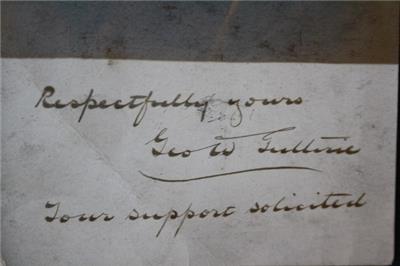 Respectfully yours
Geo W Guthrie
Your support solicited